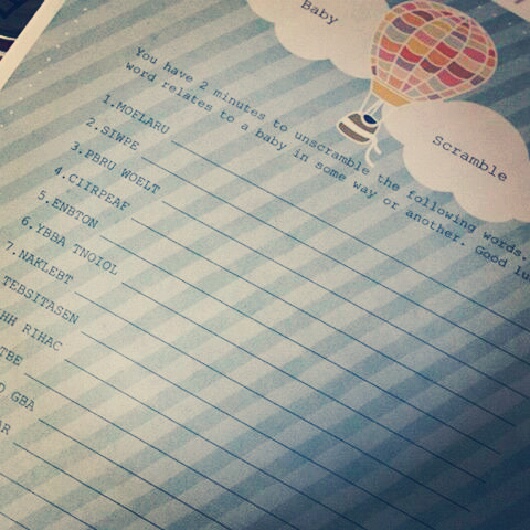 Baby
Scramble
You have 2 minutes to unscramble the following words.
word relates to a baby in some way or another. Good
1.MOFLARU
2.SIWPE
3.PBRU WOELT
4.CIIRPEAF
5.ENBTON
6.YBBA TNOIOL
7.NAKLEBT
TEBSITASEN
HH RIHAC
TBE
GBA